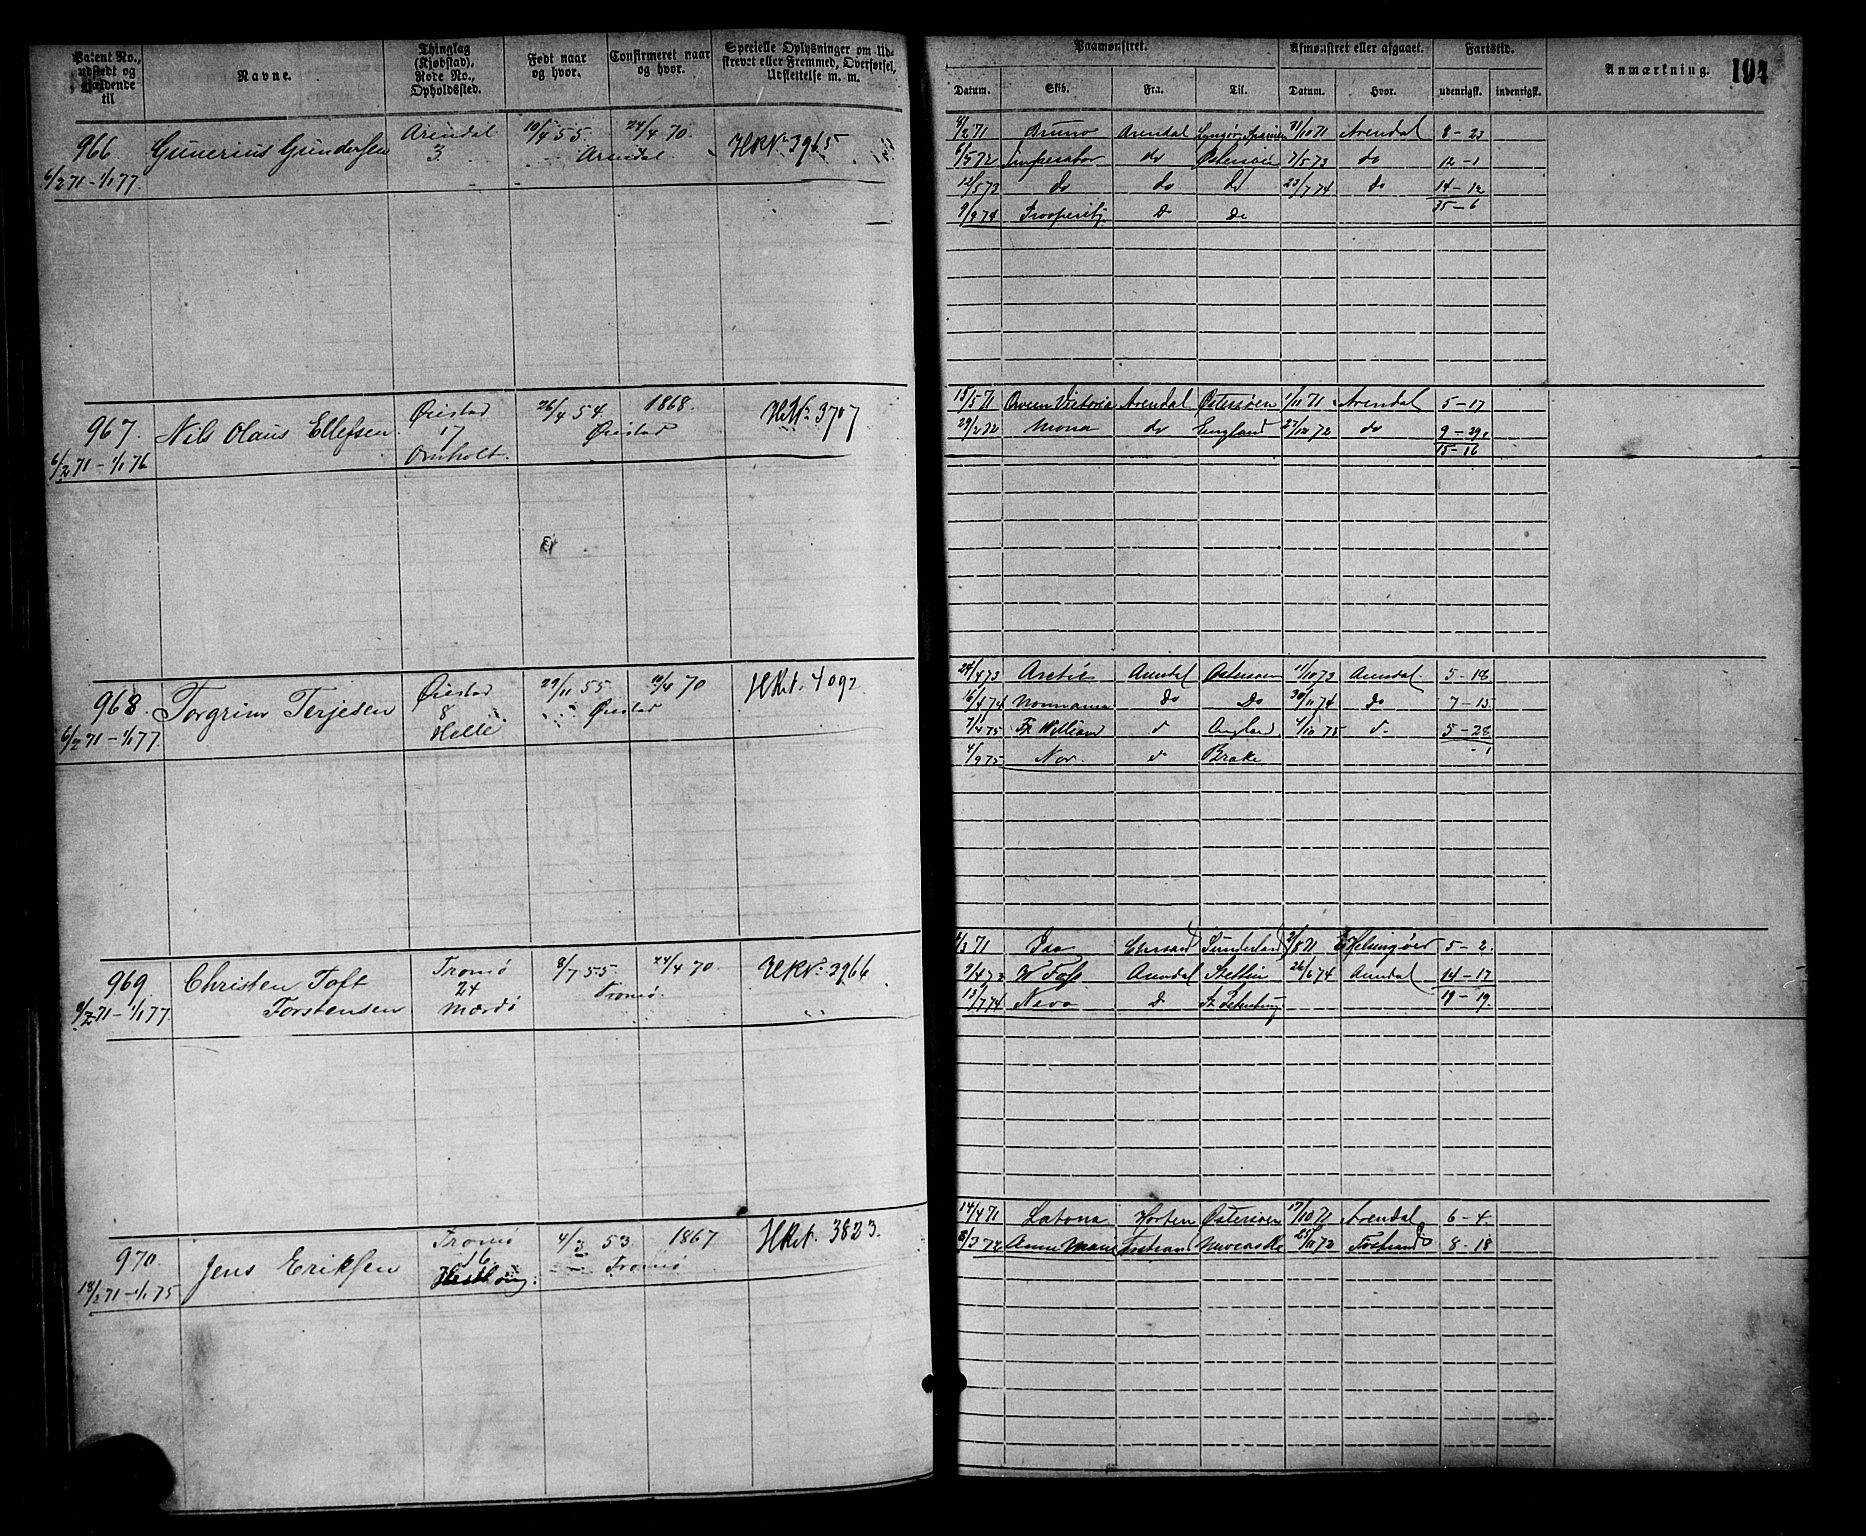 Patent No., udstedt og gjældende til
Navne.
Thinglag (Kjøbstad), Rode No., Opholdssted.
Født naar og hvor.
Confirmeret naar og hvor.
Specielle Oplysninger om Udskrevet eller Fremmed, Overførsel, Udslettelse m. m.
Paamønstret.
Afmønstret eller afgaaet.
Fartstid.
Anmærkning.
194
Datum.
Skib.
Fra.
Til.
Datum.
Hvor.
udenrigsk.
indenrigsk.
966 Gunerius Gundersen Arendal 10/4 55 24/4 70 HRN: 3965
3 Arendal
6/2 71 - 1/1 77.
8/2 71 Bruno Arendal 31/10 71 Arendal 8 - 23
6/5 72 Imperator do Østersøen 7/5 73 do 12 - 1
12/5 73 do do do 23/7 74 do 14 - 12
35 - 6
9/9 74 D de
967. Nils Olaus Ellefsen Øiestad 26/4 54. 1868. HRNr. 3707
17 Øiestad
6/2 71 - 1/1 76 Omholt.
15/5 71 Qveen Victoria Arendal Østersøen 1/11 71 Arendal 5 - 17
29/2 72 Mona do England 27/12 72 do 9 - 29
15 - 16
968. Torgrim Terjesen Øiestad 29/11 55 10/4 70 HRet. 4092
8 Øiestad
6/2 71 - 1/1 77. Helle
24/4 73 Arctic Arendal Østersøen 11/10 73 Arendal. 5 - 18
16/4 74 do do 30/11 74 do 7 - 15
7/4 75 Fr William d England 4/10 75 d- 5 - 28
4/9 75 Nor. d Brake
969 Christen Toft Tromø 8/7 55. 24/4 70. HRN: 3966
Torstensen 24 Tromø.
9/2 71 - 1/1 77 Mærdø
1/3 71 Sunderland 3/8 71 Helsingøer 5 - 2.
9/4 73 W Foss Arendal Stettin 26/6 74 Arendal 14 - 17
13/7 74 Neva D St Petersburg 19 - 19.
970. Jens Eriksen Tromø 4/2 53. 1867 HRet. 3823.
16 Tromø
18/2 71 - 1/1 75
14/4 71 Latona Horten Østersøen 17/10 71 Arendal 6 - 4.
8/3 72 Anne Marie 25/11 72 8 - 18